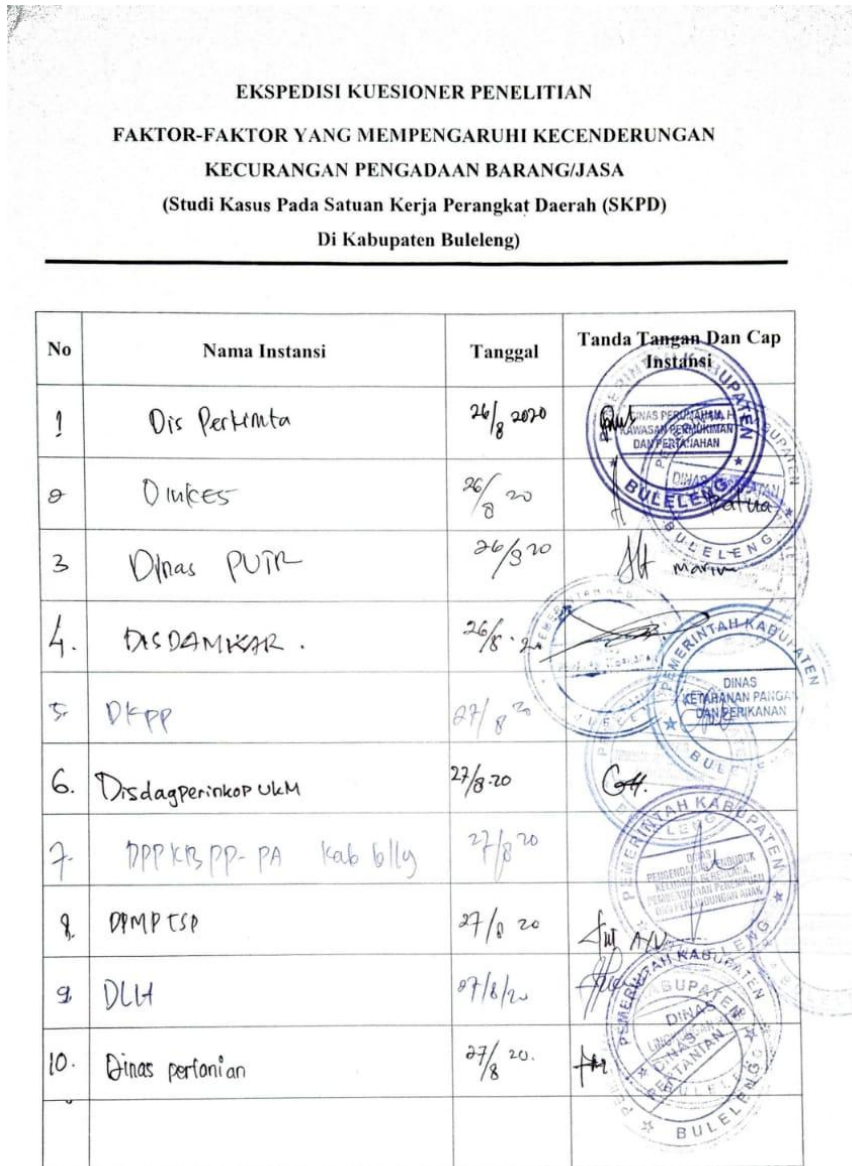 EKSPEDISI KUESIONER PENELITIAN
FAKTOR-FAKTOR YANG MEMPENGARUHI KECENDERUNGAN
KECURANGAN PENGADAAN BARANG/JASA
(Studi Kasus Pada Satuan Kerja Perangkat Daerah (SKPD)
Di Kabupaten Buleleng)
No Nama Instansi Tanggal Tanda Tangan Dan Cap Instansi
1 Dis Perkimta 26/8 2020
DINAS PERUMAHAN, KAWASAN PERMUKIMAN DAN PERTANAHAN
BULELENG
2 Dinkes 26/8 20
BULELENG
3 Dinas PUTR 26/8 20
4. DISDAMKAR. 26/8.20
5. DKPP 27/8 20
PEMERINTAH KABUPATEN
DINAS KETAHANAN PANGAN DAN PERIKANAN
6. Disdagperinkop UKM 27/8.20
7. DPPKBPP-PA Kab bllg 27/8 20
PEMERINTAH KABUPATEN
DINAS PENGENDALIAN PENDUDUK KELUARGA BERENCANA PEMBERDAYAAN PEREMPUAN DAN PERLINDUNGAN ANAK
8. DPMPTSP 27/8 20
9. DLH 27/8/20
PEMERINTAH KABUPATEN
10. Dinas pertanian 27/8 20.
DINAS PERTANIAN
BULELENG